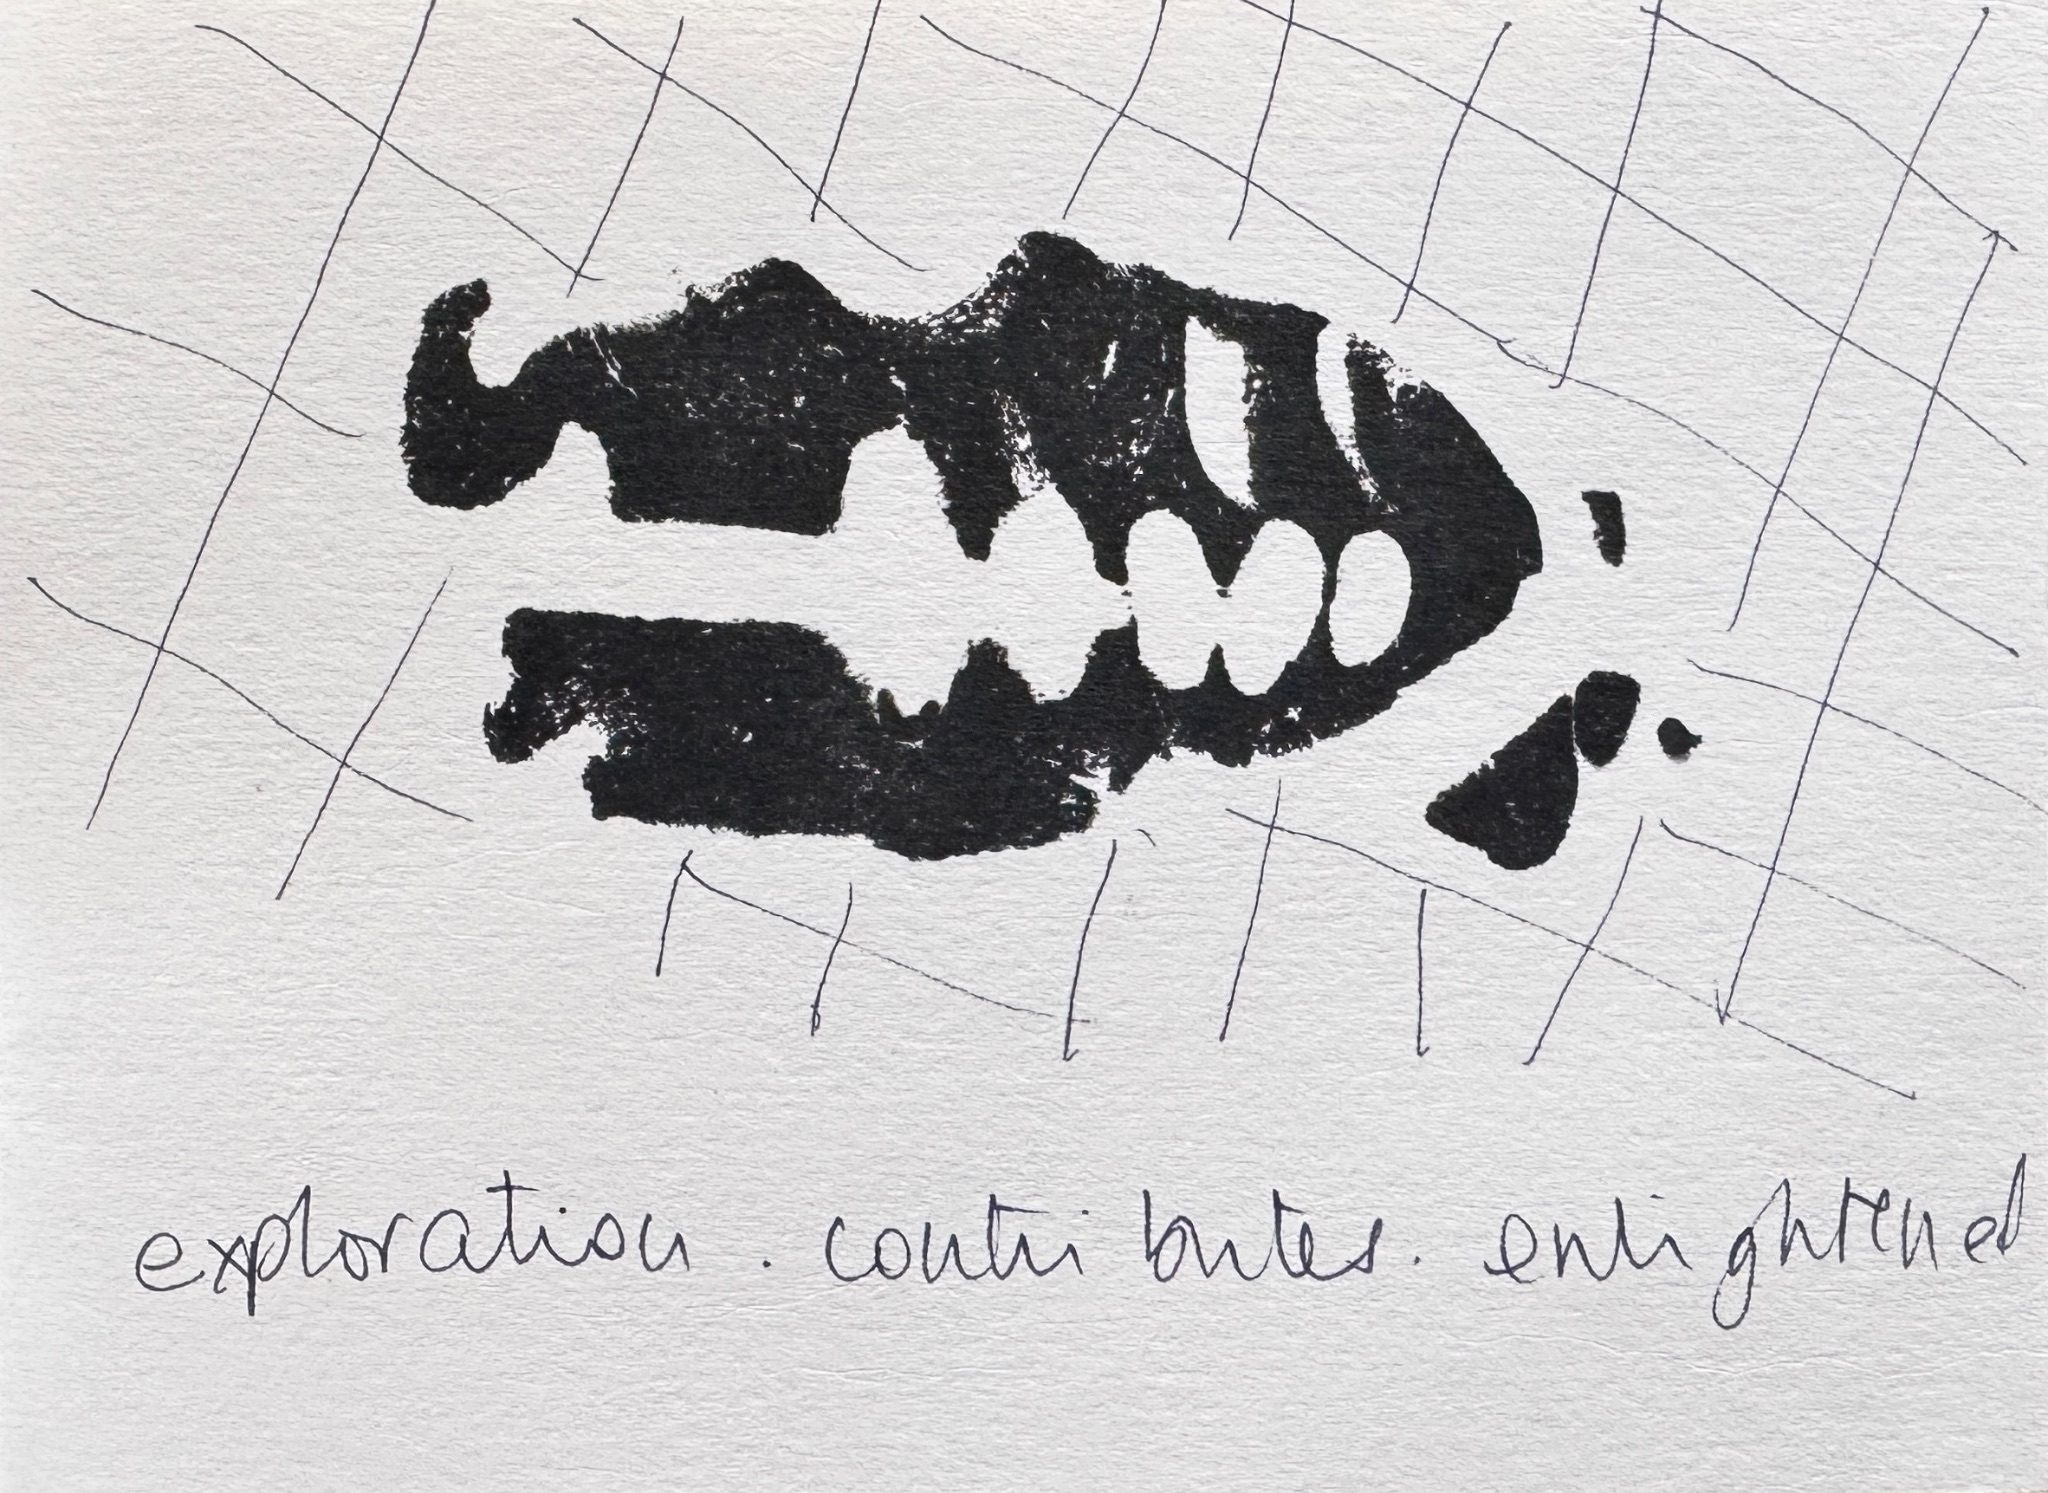 exploration . contributes . enlightened